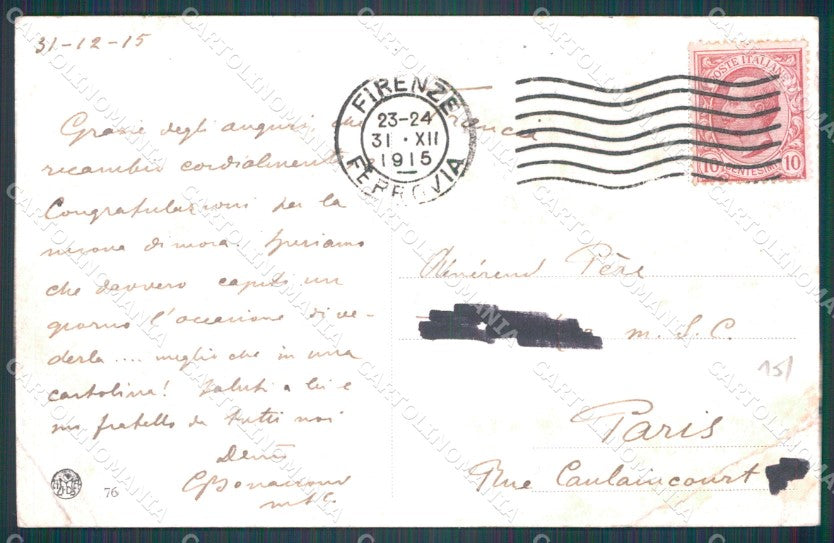 31-12-15
FIRENZE
23-24
31 · XII
1915
FERROVIA
POSTE ITALIANE
10 CENTESIMI 10
Grazie degli auguri, che
ricambio cordialmente
Congratulazioni per la
nuova dimora. Speriamo
che davvero capiti un
giorno l'occasione di ve-
derla .... meglio che in una
cartolina! Saluti a lei e
suo fratello da tutti noi
Bonaccorsi
76
Révérend Père
m. S. C.
Paris
Rue Caulaincourt
15/
CARTOLINOMANIA